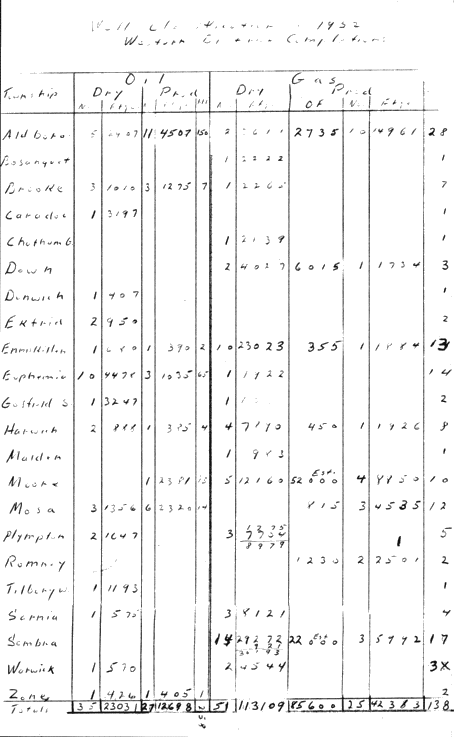 Well Classification 1952
Western Ontario Completions
Oil Gas
Township Dry Prod Dry Prod
No. Ftge. Ftge. OF No. Ftge.
Aldboro 5 2407 11 4507 150 2 2735 10 14961 28
Bosanquet 1 2222 1
Brooke 3 1010 3 1275 7 1 2265 7
Caradoc 1 3197 1
Chatham G. 1 2139 1
Dawn 2 4027 6015 1 1734 3
Dunwich 1 407 1
Ekfrid 2 950 2
Enniskillen 1 680 1 390 2 10 23023 355 1 1884 13
Euphemia 10 4478 3 1035 65 1 1422 14
Gosfield S. 1 3247 1 2
Harwich 2 888 1 385 4 4 7190 450 1 1926 8
Malden 1 983 1
Moore 1 2381 5 12160 52000 Est. 4 8850 10
Mosa 3 1356 6 2320 14 815 3 4535 12
Plympton 2 1647 3 1275 7704 8979 1 5
Romney 1230 2 2501 2
Tilbury W. 1 1193 1
Sarnia 1 575 3 8121 4
Sombra 14 29272 22000 Est. 3 5992 17
Warwick 1 570 2 3X
Zone 1 426 1 405 1 2
Totals 35 23031 27 12698 51 113109 85600 25 42383 138